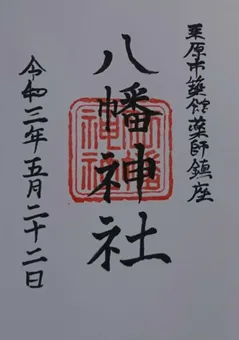 栗原市築館薬師鎮座
八幡神社
令和三年五月二十二日